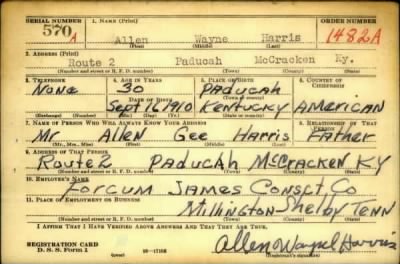 SERIAL NUMBER 1. NAME (Print) ORDER NUMBER
570 A Allen Wayne Harris 1482A
(First) (Middle) (Last)
2. ADDRESS (Print)
Route 2 Paducah McCracken Ky.
(Number and street or R. F. D. number) (Town) (County) (State)
3. TELEPHONE 4. AGE IN YEARS 5. PLACE OF BIRTH 6. COUNTRY OF CITIZENSHIP
None 30 PADUCAH
DATE OF BIRTH (Town or county)
Sept 16, 1910 KENTUCKY AMERICAN
(Exchange) (Number) (Mo.) (Day) (Yr.) (State or country)
7. NAME OF PERSON WHO WILL ALWAYS KNOW YOUR ADDRESS 8. RELATIONSHIP OF THAT PERSON
Mr Allen Gee Harris Father
(Mr., Mrs., Miss) (First) (Middle) (Last)
9. ADDRESS OF THAT PERSON
Route 2 PADUCAH McCRACKEN KY
(Number and street or R. F. D. number) (Town) (County) (State)
10. EMPLOYER'S NAME
FORCUM JAMES CONSCT. CO
11. PLACE OF EMPLOYMENT OR BUSINESS
Millington Shelby TENN
(Number and street or R. F. D. number) (Town) (County) (State)
I AFFIRM THAT I HAVE VERIFIED ABOVE ANSWERS AND THAT THEY ARE TRUE.
REGISTRATION CARD
D. S. S. Form 1 Allen Wayne Harris
(over) (Registrant's signature)